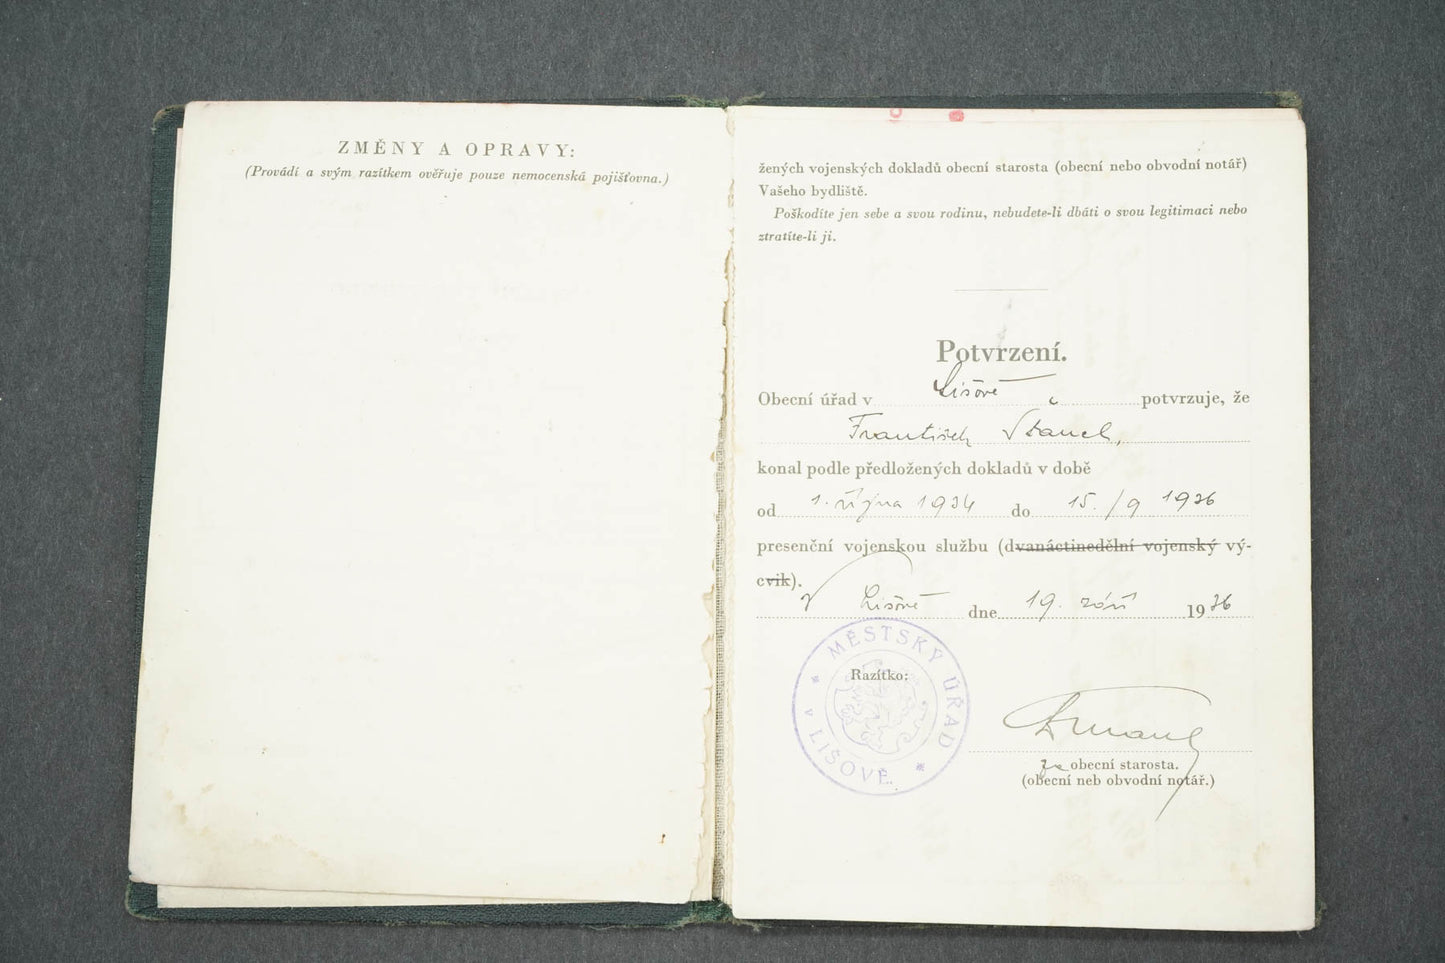 ZMĚNY A OPRAVY:
(Provádí a svým razítkem ověřuje pouze nemocenská pojišťovna.)
žených vojenských dokladů obecní starosta (obecní nebo obvodní notář)
Vašeho bydliště.
Poškodíte jen sebe a svou rodinu, nebudete-li dbáti o svou legitimaci nebo
ztratíte-li ji.
Potvrzení.
Obecní úřad v Lišově potvrzuje, že
František
konal podle předložených dokladů v době
od 1. října 1934 do 15./9 1936
presenční vojenskou službu (dvanáctinedělní vojenský vý-
cvik).
V Lišově dne 19. září 1936
MĚSTSKÝ ÚŘAD
V LIŠOVĚ
Razítko:
za obecní starosta.
(obecní neb obvodní notář.)